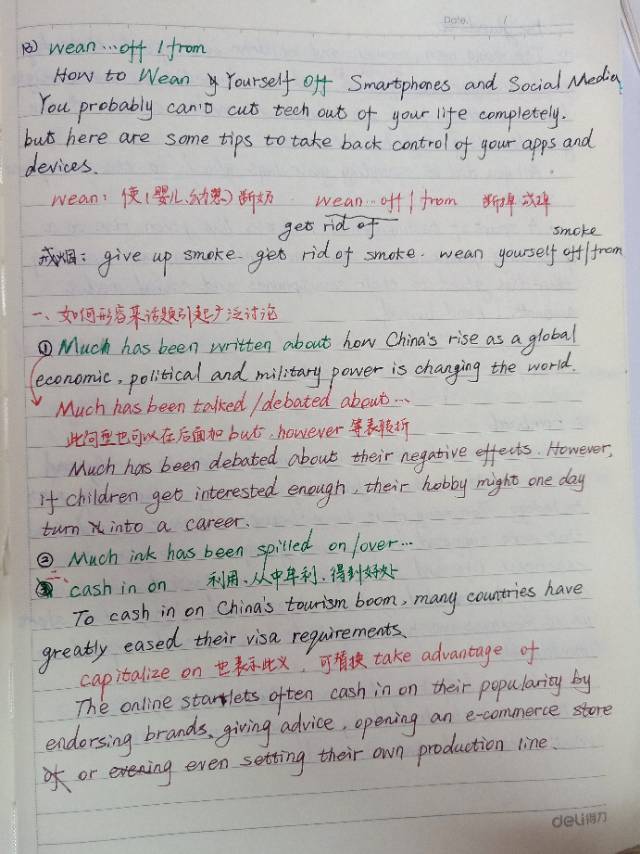 Date. /
13) wean…off / from
How to Wean Yourself off Smartphones and Social Media
You probably can't cut tech out of your life completely.
but here are some tips to take back control of your apps and
devices.
wean: 使(婴儿、幼崽)断奶 wean…off / from 断掉 戒掉
get rid of
smoke
戒烟: give up smoke. get rid of smoke. wean yourself off/from
一、如何形容某话题引起广泛讨论
① Much has been written about how China's rise as a global
economic, political and military power is changing the world.
Much has been talked/debated about…
此句型也可以在后面加 but, however 等表转折
Much has been debated about their negative effects. However,
if children get interested enough, their hobby might one day
turn into a career.
② Much ink has been spilled on/over…
二、cash in on 利用、从中牟利、得到好处
To cash in on China's tourism boom, many countries have
greatly eased their visa requirements.
capitalize on 也表示此义, 可替换 take advantage of
The online starlets often cash in on their popularity by
endorsing brands, giving advice, opening an e-commerce store
or even setting their own production line.
deli得力